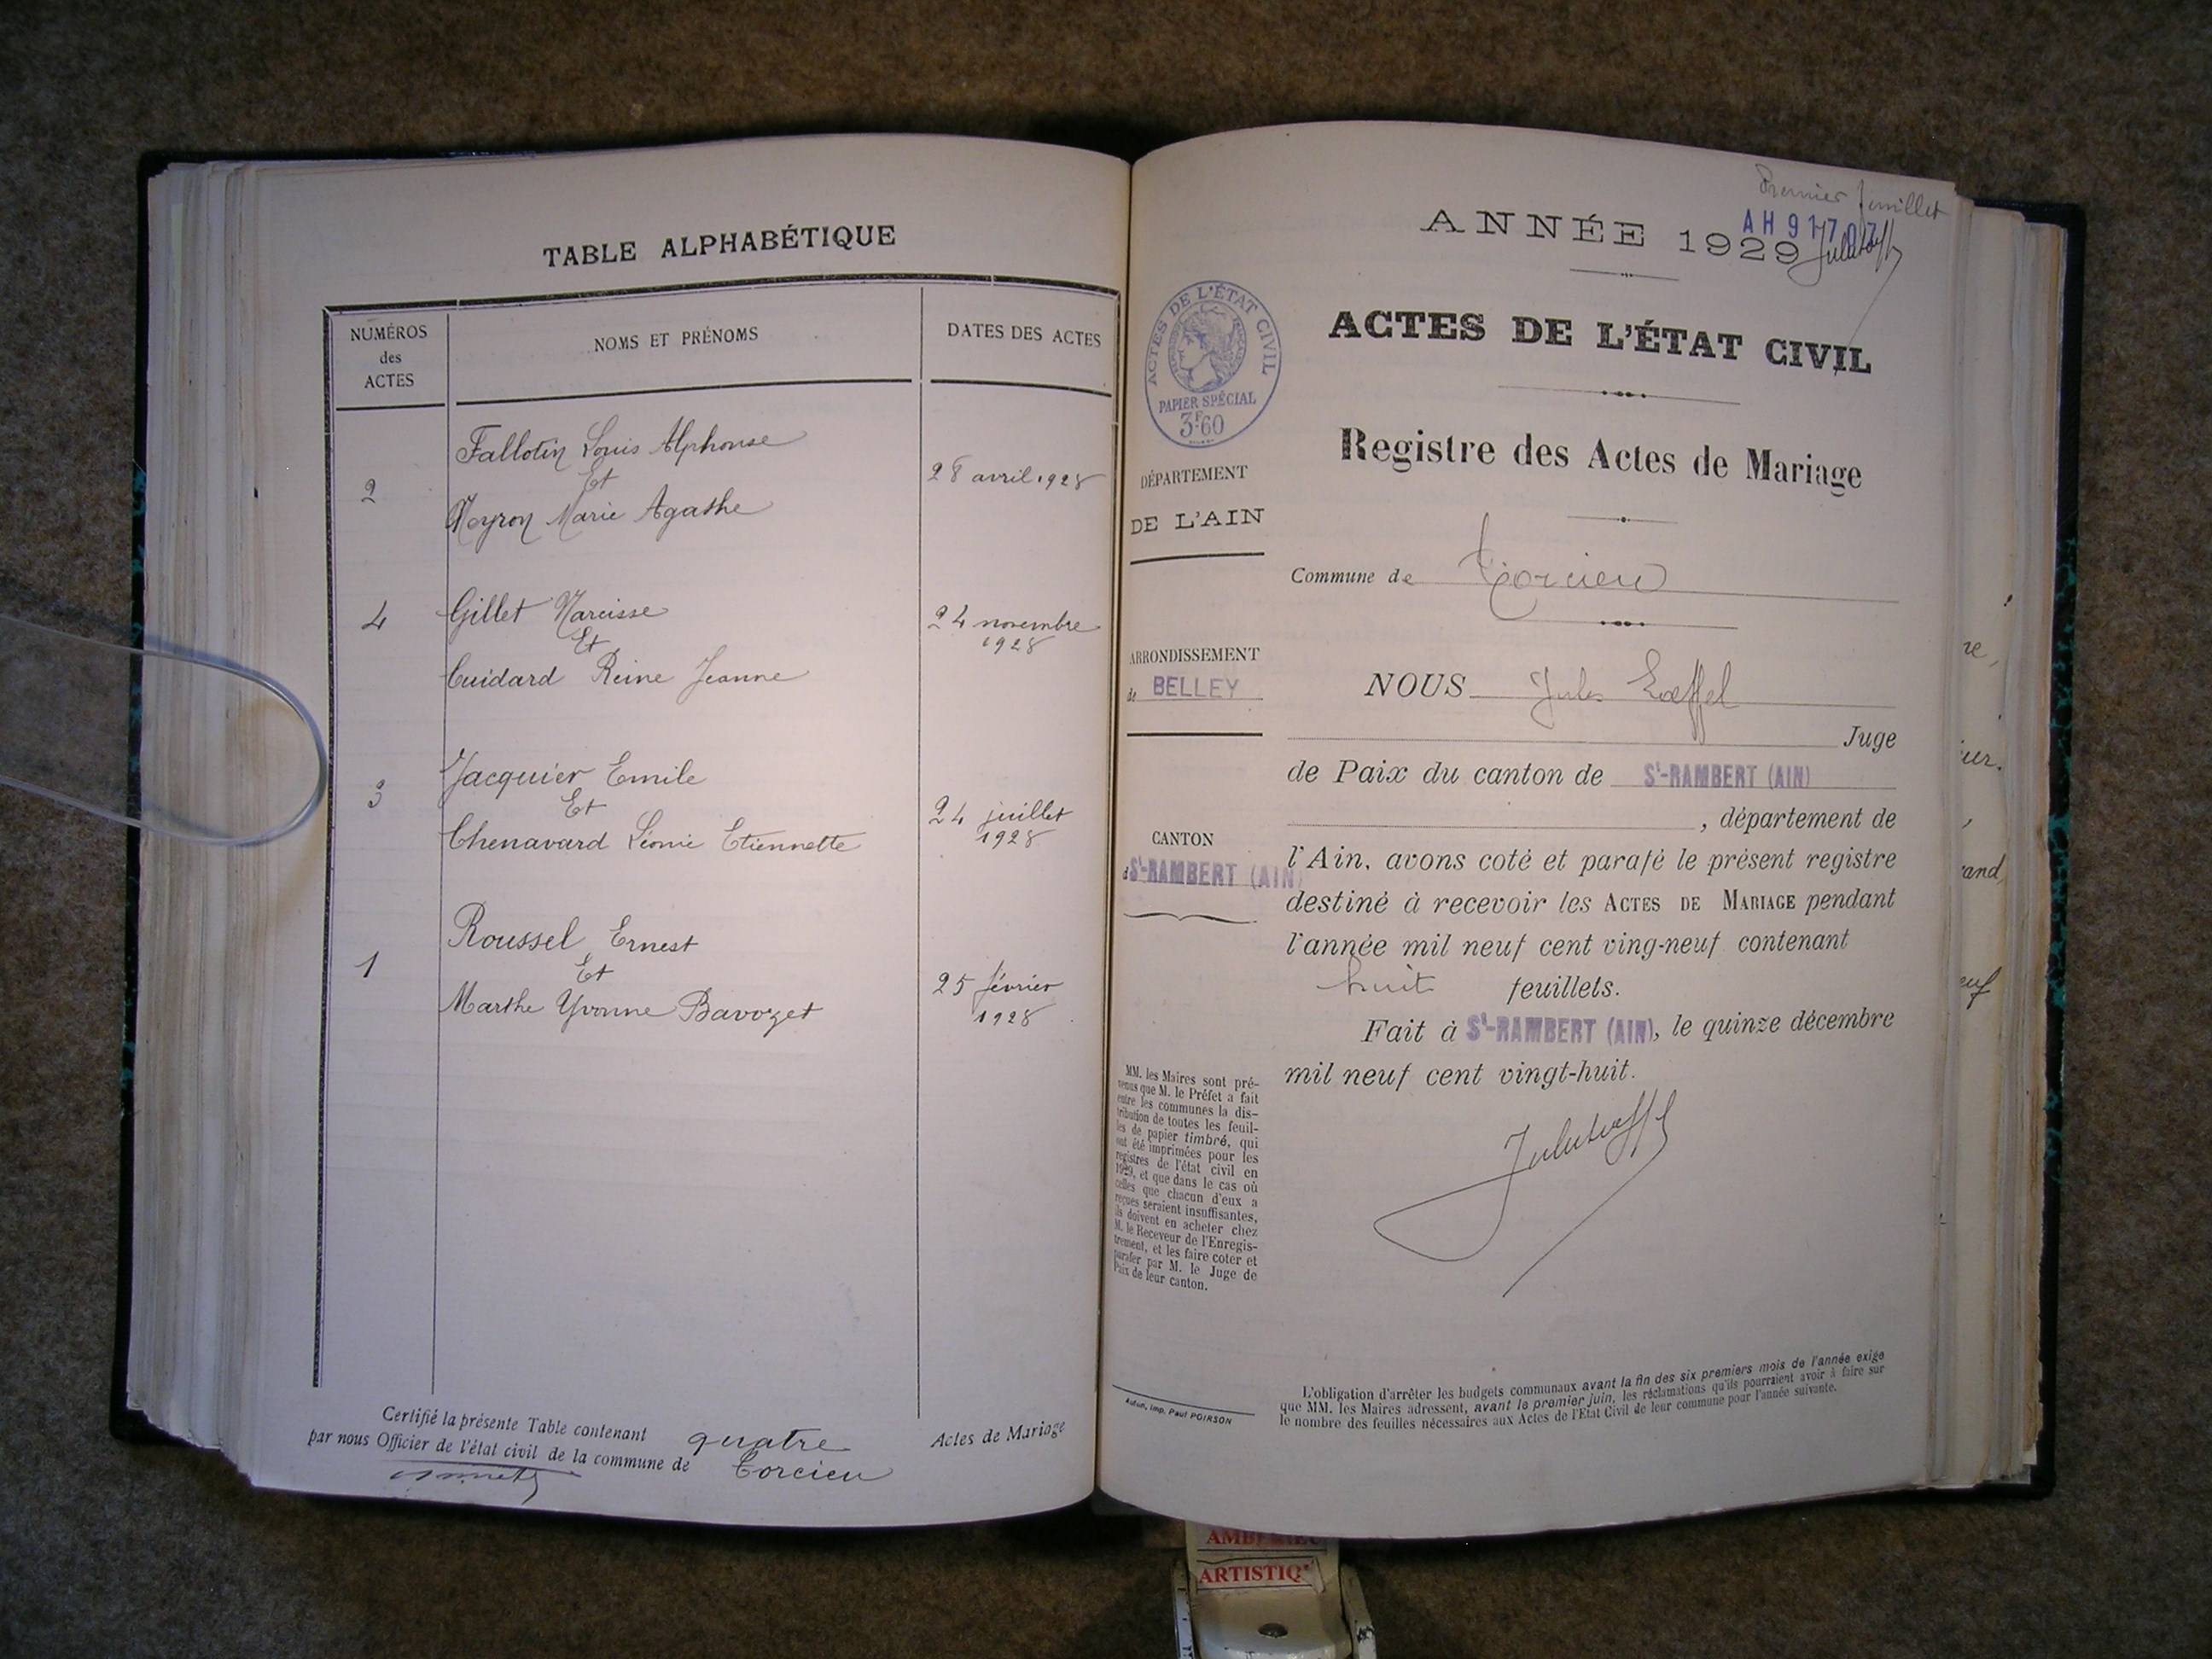 TABLE ALPHABÉTIQUE
NUMÉROS
des
ACTES
NOMS ET PRÉNOMS
DATES DES ACTES
Fallotin Louis Alphonse
2
Et
28 avril 1928
Neyron Marie Agathe
4
Gillet Narcisse
24 novembre
1928
Et
Cuidard Reine Jeanne
3
Jacquier Emile
Et
24 juillet
1928
Chenavard Léonie Etiennette
1
Roussel Ernest
Et
25 février
1928
Marthe Yvonne Bavozet
Certifié la présente Table contenant quatre Actes de Mariage
par nous Officier de l'état civil de la commune de Torcieu
Premier feuillet
AH 91707
ANNÉE 1929
ACTES DE L'ÉTAT CIVIL
PAPIER SPÉCIAL
3F60
ACTES DE L'ÉTAT CIVIL
Registre des Actes de Mariage
DÉPARTEMENT
DE L'AIN
Commune de Torcieu
ARRONDISSEMENT
de BELLEY
CANTON
ST-RAMBERT (AIN)
NOUS Jules Loeffel
Juge
de Paix du canton de ST-RAMBERT (AIN)
, département de
l'Ain, avons coté et parafé le présent registre
destiné à recevoir les ACTES DE MARIAGE pendant
l'année mil neuf cent ving-neuf contenant
huit feuillets.
Fait à ST-RAMBERT (AIN), le quinze décembre
mil neuf cent vingt-huit.
MM. les Maires sont pré-
venus que M. le Préfet a fait
entre les communes la dis-
tribution de toutes les feuil-
les de papier timbré, qui
ont été imprimées pour les
registres de l'état civil en
1929, et que dans le cas où
celles que chacun d'eux a
reçues seraient insuffisantes,
ils doivent en acheter chez
M. le Receveur de l'Enregis-
trement, et les faire coter et
parafer par M. le Juge de
Paix de leur canton.
Autun, Imp. Paul POIRSON
L'obligation d'arrêter les budgets communaux avant la fin des six premiers mois de l'année exige
que MM. les Maires adressent, avant le premier juin, les réclamations qu'ils pourraient avoir à faire sur
le nombre des feuilles nécessaires aux Actes de l'Etat Civil de leur commune pour l'année suivante.
re,
ur.
and,
euf
ARTISTIQ